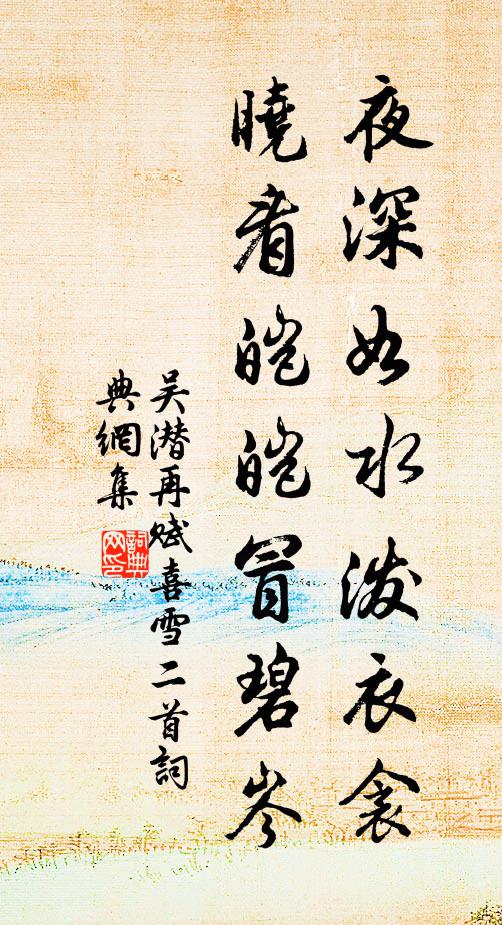 夜深如水泼衣衾
曉看皑皑冒碧岑
吴潜再赋喜雪二首詞
典網集
詞典
网印